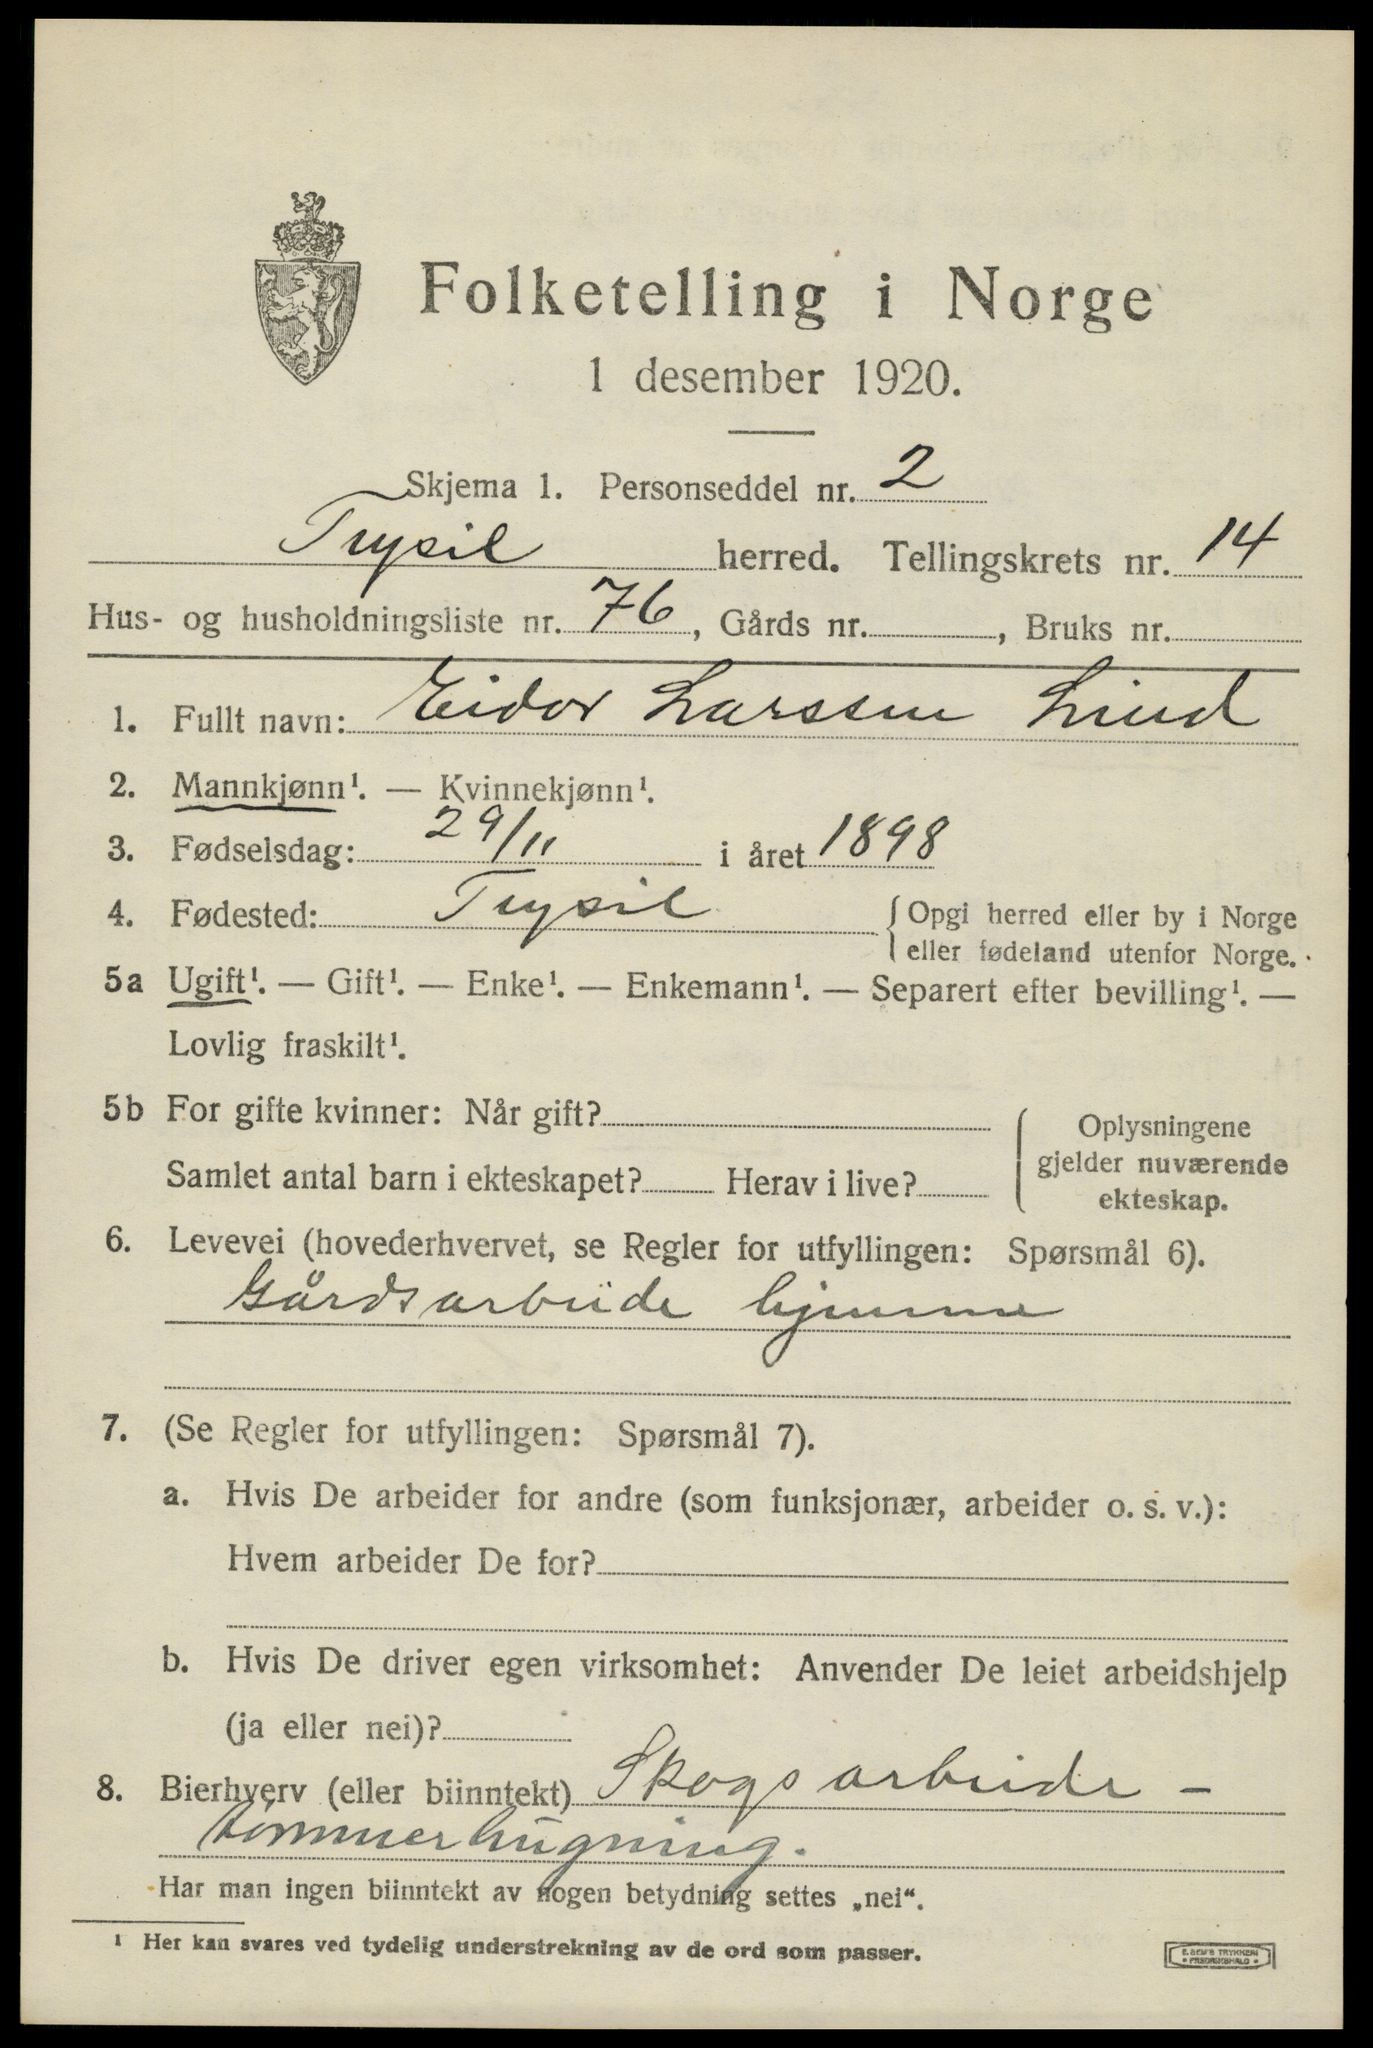 Folketelling i Norge
1 desember 1920.
Skjema 1. Personseddel nr. 2
Trysil herred. Tellingskrets nr. 14
Hus- og husholdningsliste nr. 76, Gårds nr. , Bruks nr.
1. Fullt navn: Eidor Larssen Lind
2. Mannkjønn¹. — Kvinnekjønn¹.
3. Fødselsdag: 29/11 i året 1898
4. Fødested: Trysil {Opgi herred eller by i Norge
eller fødeland utenfor Norge.
5a Ugift¹. — Gift¹. — Enke¹. — Enkemann¹. — Separert efter bevilling¹. —
Lovlig fraskilt¹.
5b For gifte kvinner: Når gift?
Samlet antal barn i ekteskapet? Herav i live?
Oplysningene
gjelder nuværende
ekteskap.
6. Levevei (hovederhvervet, se Regler for utfyllingen: Spørsmål 6).
Gårdsarbeide hjemme
7. (Se Regler for utfyllingen: Spørsmål 7).
a. Hvis De arbeider for andre (som funksjonær, arbeider o. s. v.):
Hvem arbeider De for?
b. Hvis De driver egen virksomhet: Anvender De leiet arbeidshjelp
(ja eller nei)?
8. Bierhverv (eller biinntekt) Skogsarbeide -
tømmerhugning.
Har man ingen biinntekt av nogen betydning settes „nei“.
¹ Her kan svares ved tydelig understrekning av de ord som passer.
E. SEM'S TRYKKERI
• FREDRIKSHALD •